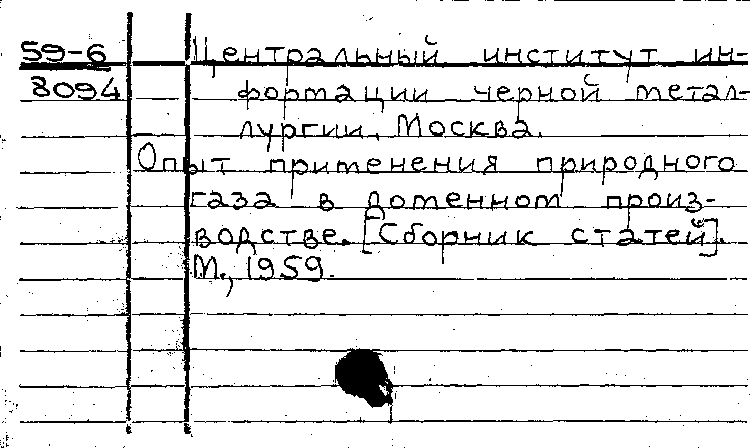 59-6 Центральный институт ин-
8094 формации черной метал-
лургии, Москва.
Опыт применения природного
газа в доменном произ-
водстве. [Сборник статей].
М., 1959.